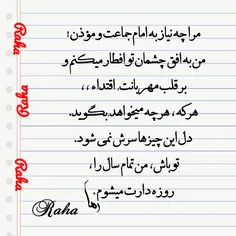 مرا چه نیاز به امام جماعت و مؤذن!
من به افق چشمان تو افطار میکنم و
بر قلب مهربانت، اقتداء ،،
هرکه، هرچه میخواهد، بگوید.
دل این چیزها سرش نمی شود.
تو باش، من تمام سال را،
روزه دارت میشوم.
رها
Raha
Raha
Raha
Raha